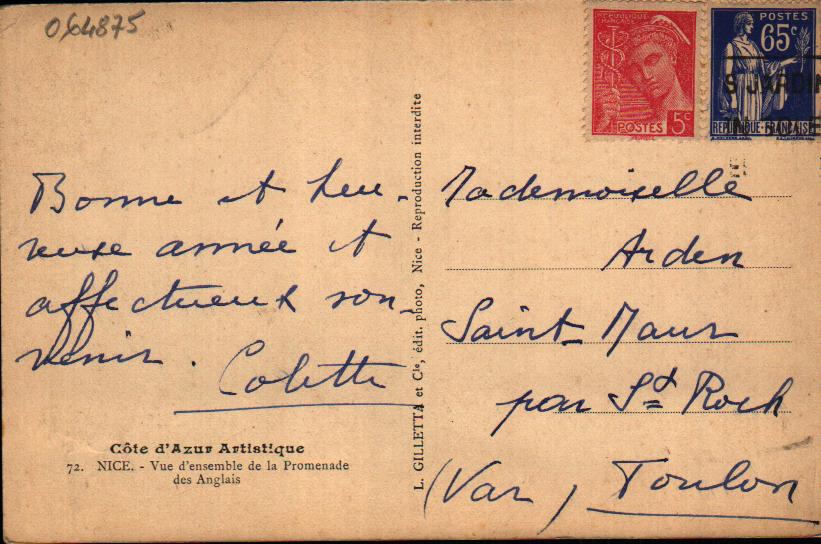 064875
REPUBLIQUE FRANÇAISE
POSTES 5c
POSTES
65c
REPUBLIQUE-FRANÇAISE
S JARDIN
Bonne et heu-
reuse année et
affectueux sou-
venir.
Colette
Côte d'Azur Artistique
72. NICE. - Vue d'ensemble de la Promenade
des Anglais
L. GILLETTA et Cie, édit. photo, Nice - Reproduction interdite
Mademoiselle
Arden
Saint-Maur
par St Roch
(Var) Toulon